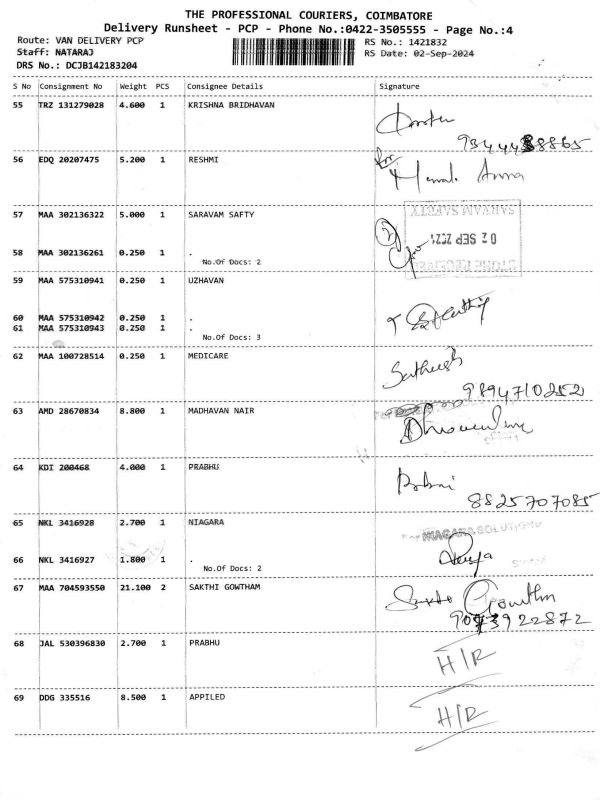 THE PROFESSIONAL COURIERS, COIMBATORE
Delivery Runsheet - PCP - Phone No.:0422-3505555 - Page No.:4
Route: VAN DELIVERY PCP RS No.: 1421832
Staff: NATARAJ RS Date: 02-Sep-2024
DRS No.: DCJB142183204
S No Consignment No Weight PCS Consignee Details Signature
55 TRZ 131279028 4.600 1 KRISHNA BRIDHAVAN
56 EDQ 20207475 5.200 1 RESHMI
57 MAA 302136322 5.000 1 SARAVAM SAFTY
SARVAM SAFETY
02 SEP 2024
58 MAA 302136261 0.250 1 .
No.Of Docs: 2
STORE RECEIVED
59 MAA 575310941 0.250 1 UZHAVAN
60 MAA 575310942 0.250 1 .
61 MAA 575310943 0.250 1 .
No.Of Docs: 3
62 MAA 100728514 0.250 1 MEDICARE
Sathish
9894710252
63 AMD 28670834 8.800 1 MADHAVAN NAIR
64 KDI 200468 4.000 1 PRABHU
8825707085
65 NKL 3416928 2.700 1 NIAGARA
For NIAGARA SOLUTIONS
66 NKL 3416927 1.800 1 .
No.Of Docs: 2
67 MAA 704593550 21.100 2 SAKTHI GOWTHAM
Gowthm
68 JAL 530396830 2.700 1 PRABHU
H/R
69 DDG 335516 8.500 1 APPILED
H/R